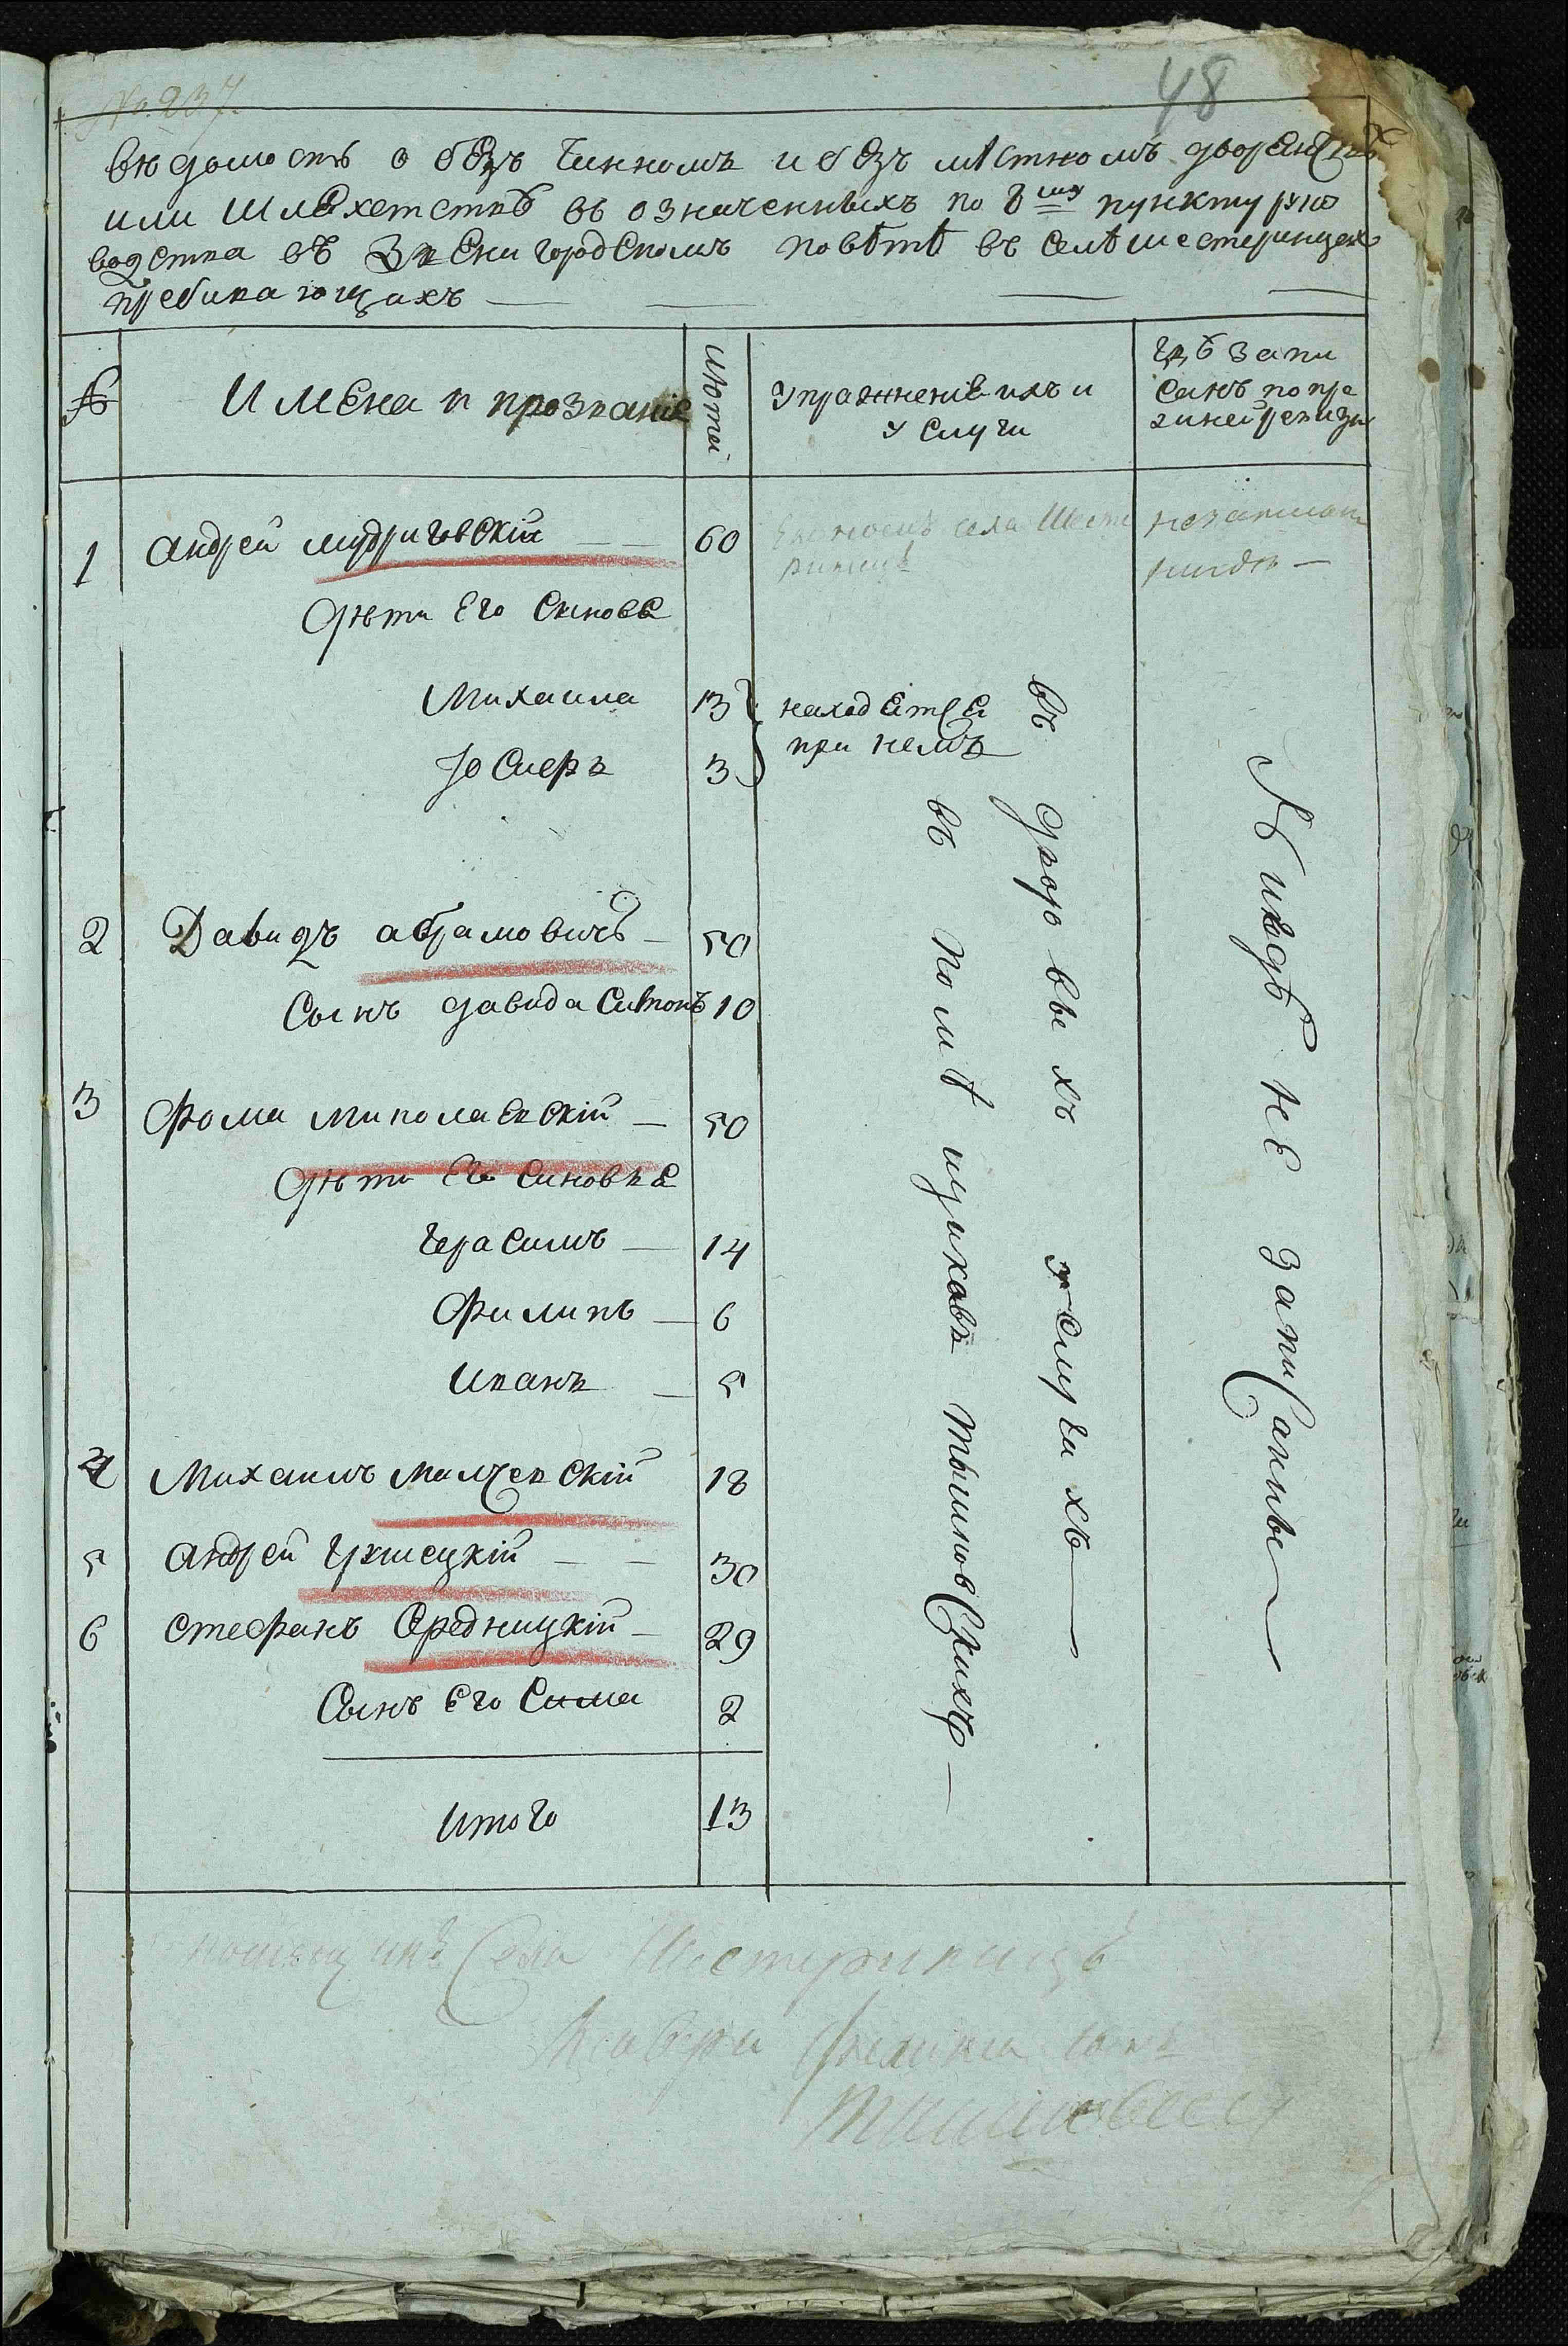 № 237.
48
вѣдомость о безъ чинномъ и безъ мѣстномъ дворянствѣ
или шляхетствѣ въ означенныхъ по 8му пункту руко
водства въ Звенигородскомъ повѣтѣ въ селѣ шестеринцахъ
пребивающихъ
№
Имена и прозваніе
лѣтей
Упражненіе ихъ и
услуги
гдѣ запи
санъ по пре
жней ревизіи
1 андрей мудриговскій 60 Економъ села Шесте незаписанъ
ринецъ нигдѣ
Дѣти Его Синове
Михаила 13 находятся
Іосифъ 3 при немъ
2 Давидъ абрамовичъ 50
Сынъ давида Симонъ 10
3 Фома миколаевскій 50
Дѣти Его Синовѣе
герасимъ 14
Филипъ 6
Иванъ 5
4 Михаилъ малчевскій 18
5 андрей гржшецкій 30
6 стефанъ Средницкій 29
Сынъ Его Сима 2
итого 13
въ дворовыхъ услугахъ
въ помѣщиковъ тышковскихъ
Нигдѣ не записанные
помѣщикъ Села Шестиринецъ